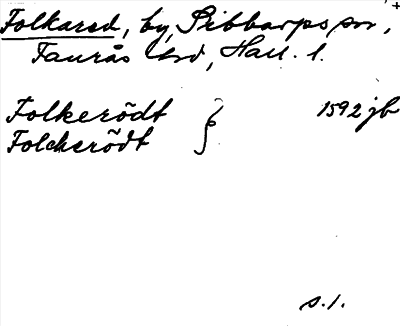 Folkared, by, Sibbarps sn,
Faurås hd, Hall. l.
Folkerödt } 1592 jb
Folckerödt
s. 1.